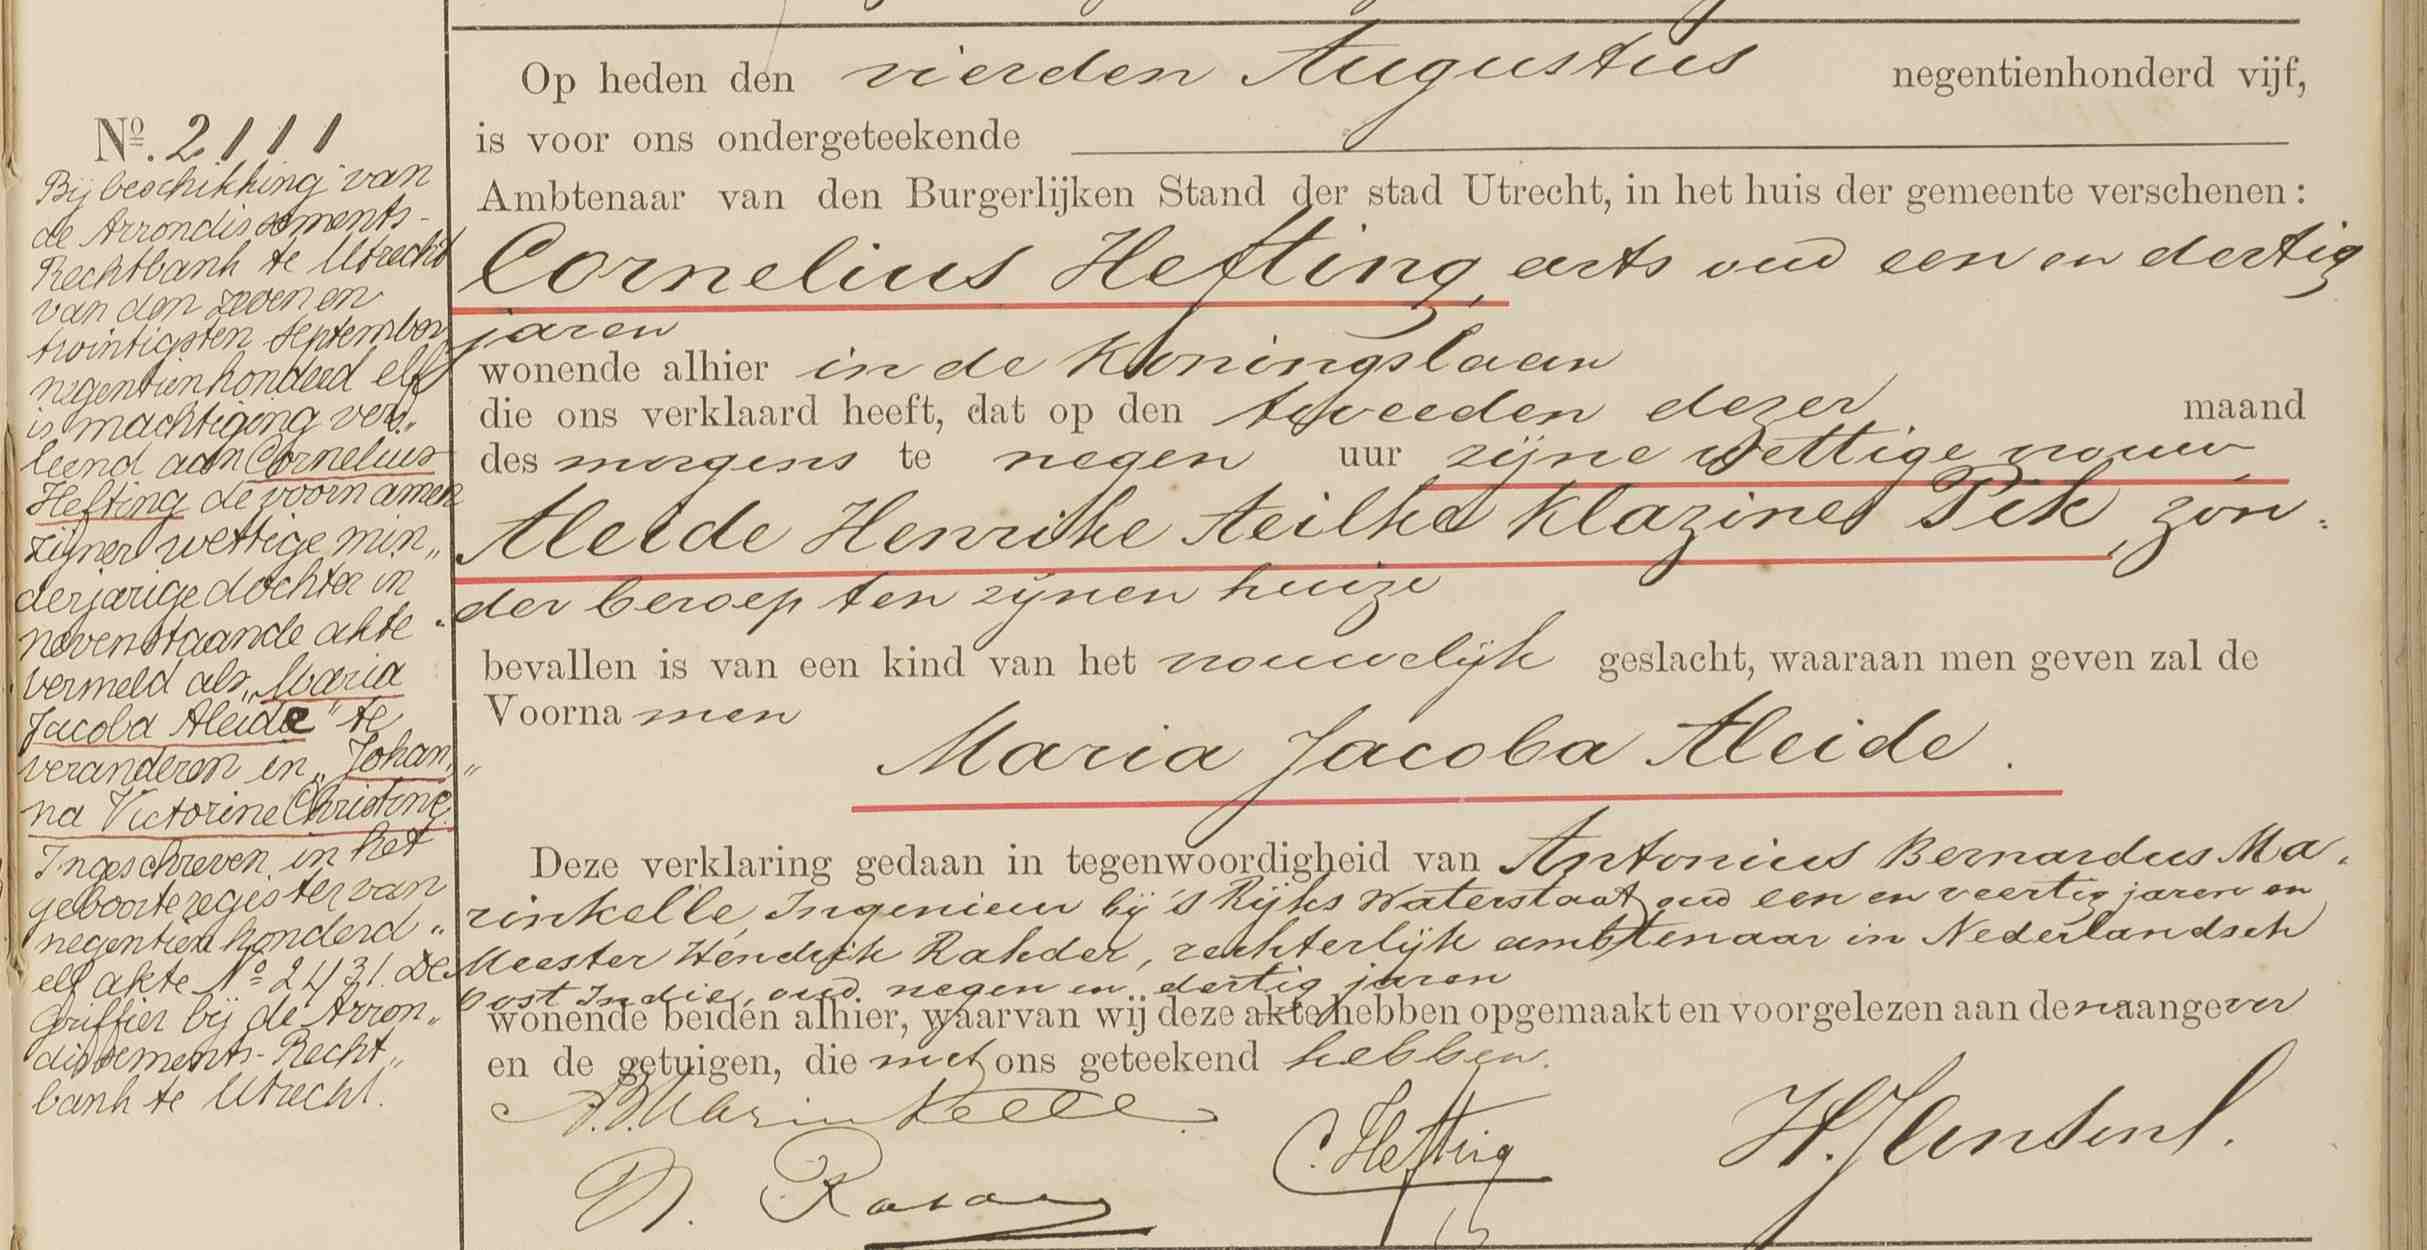 Nº. 2111
Bij beschikking van
de Arrondissements-
Rechtbank te Utrecht
van den zeven en
twintigsten September
negentienhonderd elf
is machtiging ver„
leend aan Cornelius
Hefting de voornamen
zijner wettige min„
derjarige dochter in
nevenstaande akte
vermeld als „Maria
Jacoba Aleide" te
veranderen in „Johan„
na Victorine Christine"
Ingeschreven in het
geboorteregister van
negentien honderd „
elf akte Nº 2431. De
Griffier bij de Arron„
dissements-Recht„
bank te Utrecht.
Op heden den vierden Augustus negentienhonderd vijf,
is voor ons ondergeteekende
Ambtenaar van den Burgerlijken Stand der stad Utrecht, in het huis der gemeente verschenen:
Cornelius Hefting, arts oud een en dertig
jaren
wonende alhier in de Koningslaan
die ons verklaard heeft, dat op den tweeden dezer maand
des morgens te negen uur zijne wettige vrouw
Aleide Henrike Aeilke Klazine Pik, zon:
der beroep ten zijnen huize
bevallen is van een kind van het vrouwelijk geslacht, waaraan men geven zal de
Voornamen
Maria Jacoba Aleide.
Deze verklaring gedaan in tegenwoordigheid van Antonius Bernardus Ma.
rinkelle, Ingenieur bij 's Rijks Waterstaat oud een en veertig jaren en
Meester Hendrik Rahder, rechterlijk ambtenaar in Nederlandsch
Oost Indie, oud negen en dertig jaren
wonende beiden alhier, waarvan wij deze akte hebben opgemaakt en voorgelezen aan den aangever
en de getuigen, die met ons geteekend hebben.
A.B. Marinkelle
C. Hefting
H. Jansen
H. Rahder